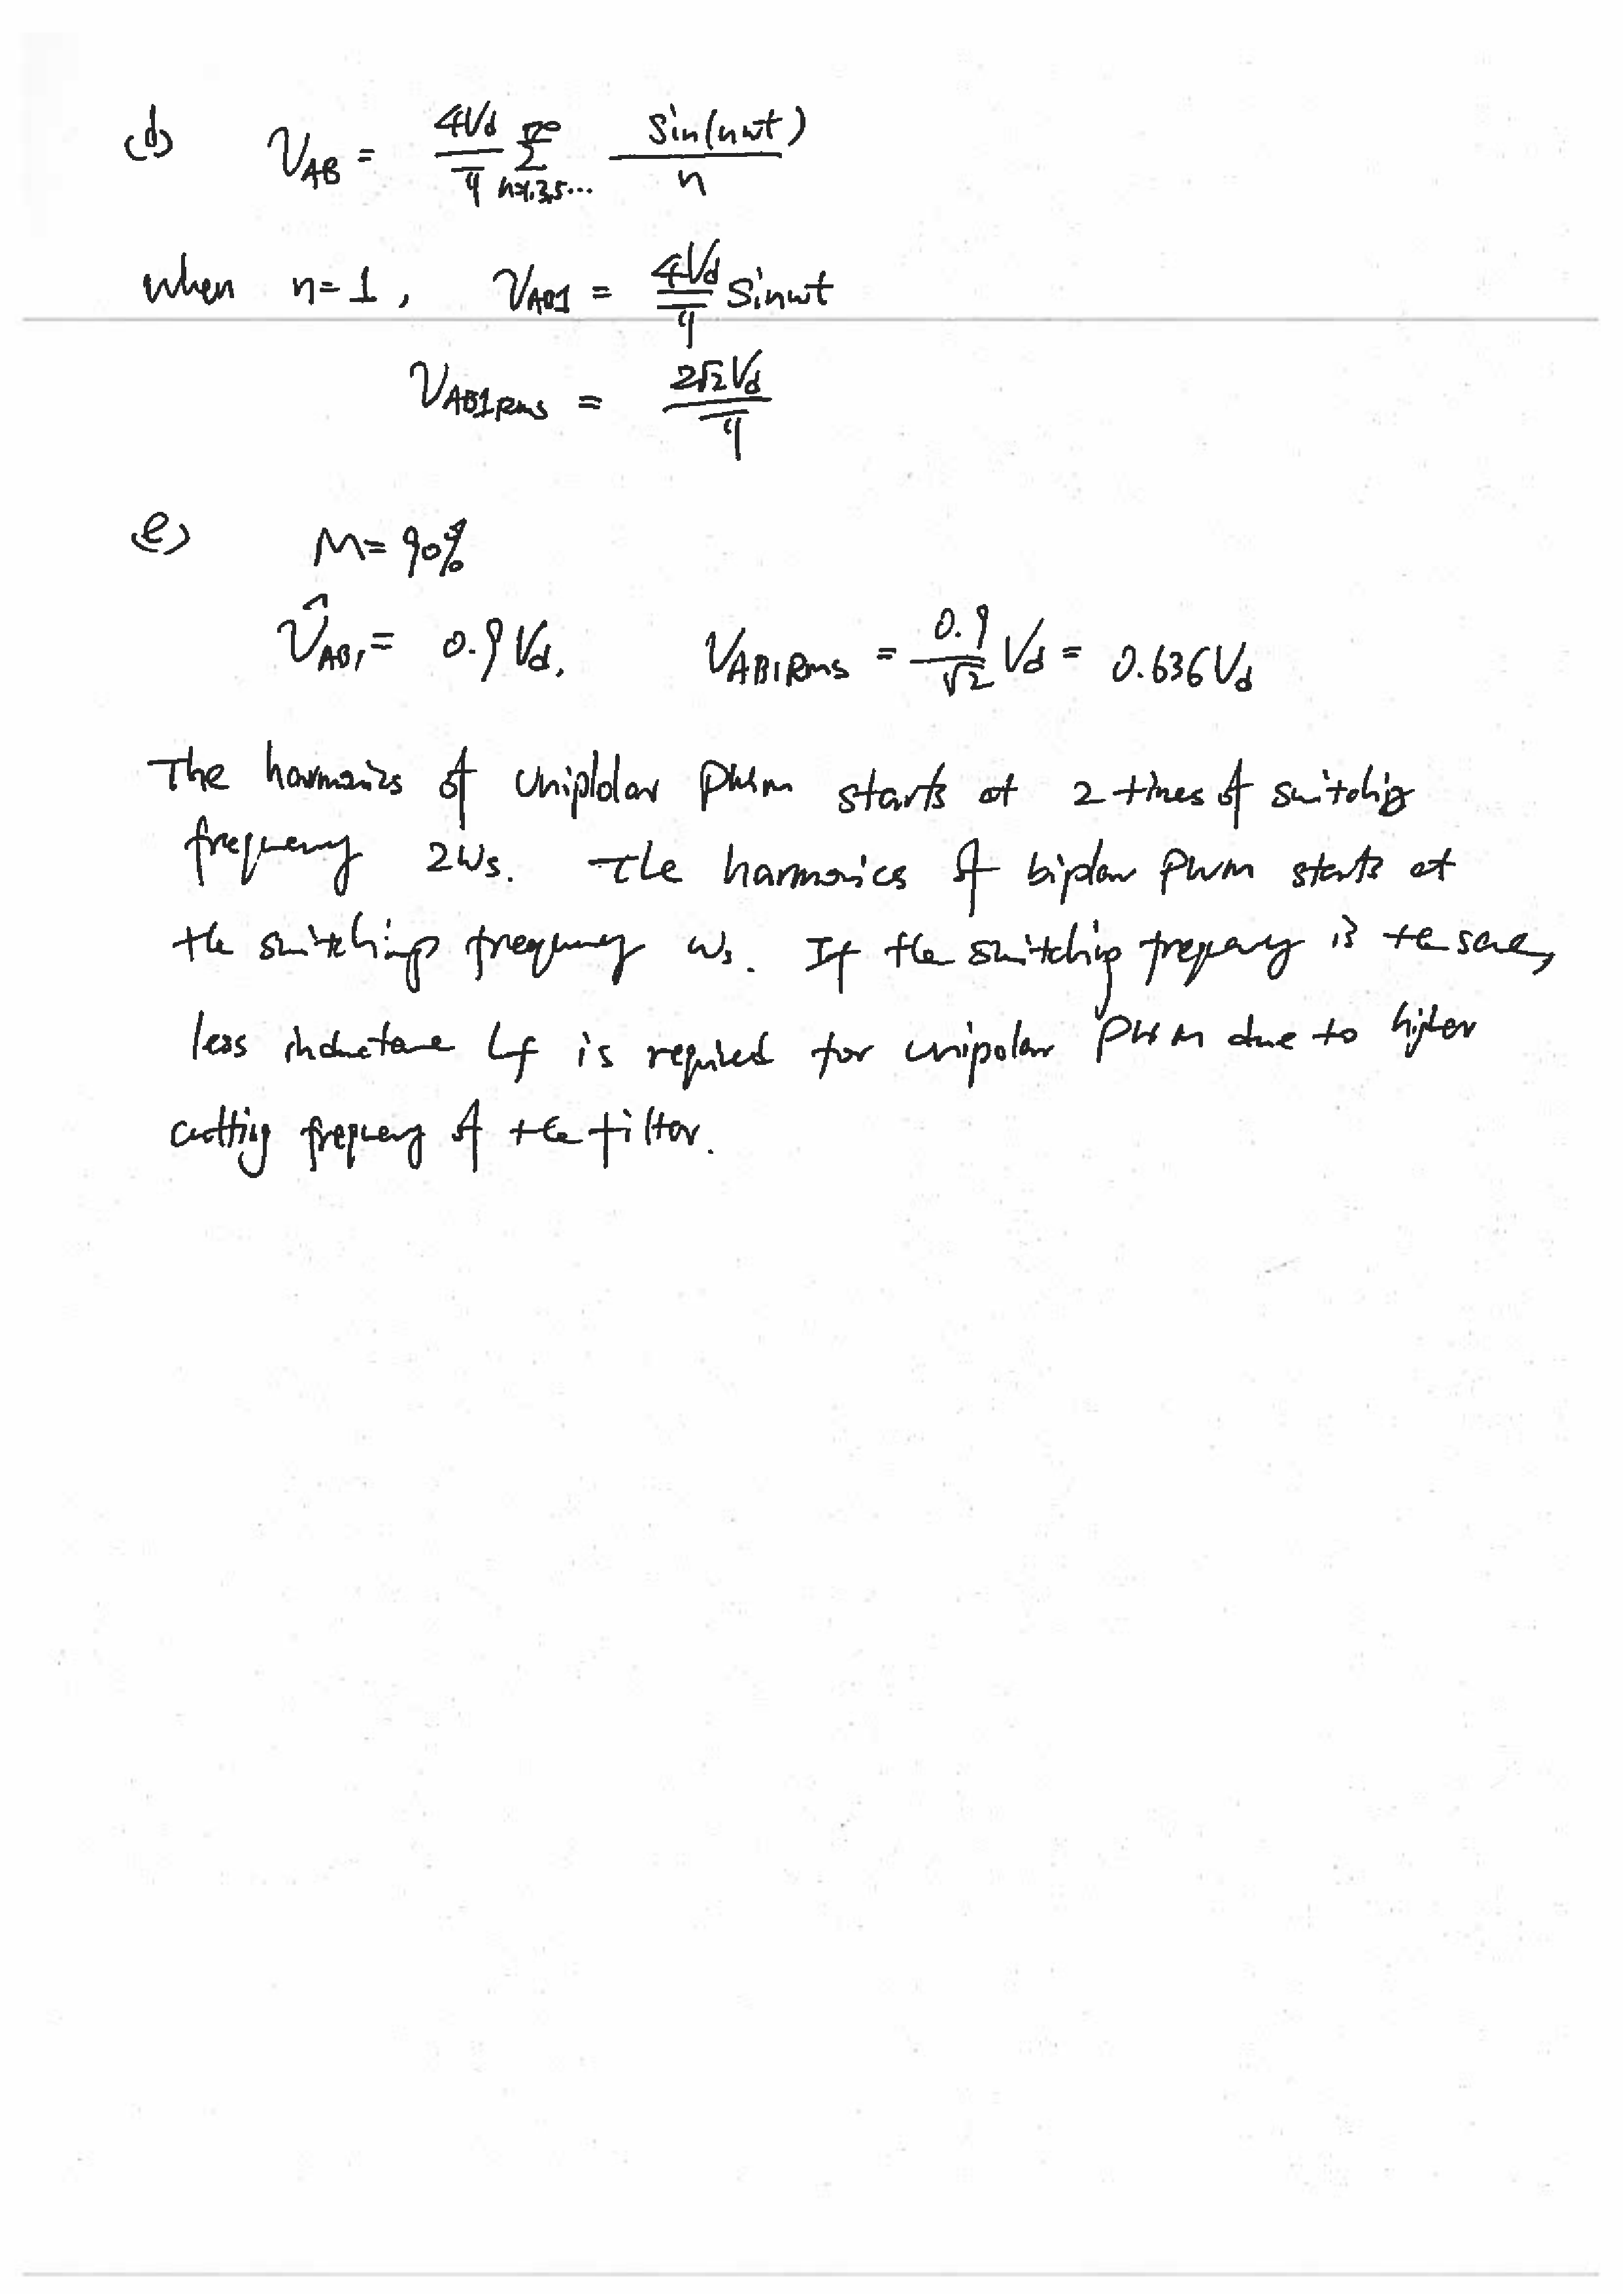 (d) V_AB = 4Vd/π Σ^∞_{n=1,3,5...} Sin(nωt)/n
when n=1, V_AB1 = 4Vd/π Sinωt
V_AB1Rms = 2√2Vd/π
(e) M=90%
V̂_AB1= 0.9Vd, V_AB1Rms = 0.9/√2 Vd = 0.636Vd
The harmonics of uniplolar PWM starts at 2 times of switching
frequency 2ωs. The harmonics of biplar PWM starts at
the switching frequency ωs. If the switching frequency is the same,
less inductance Lf is required for unipolar PWM due to higher
cutting frequency of the filter.